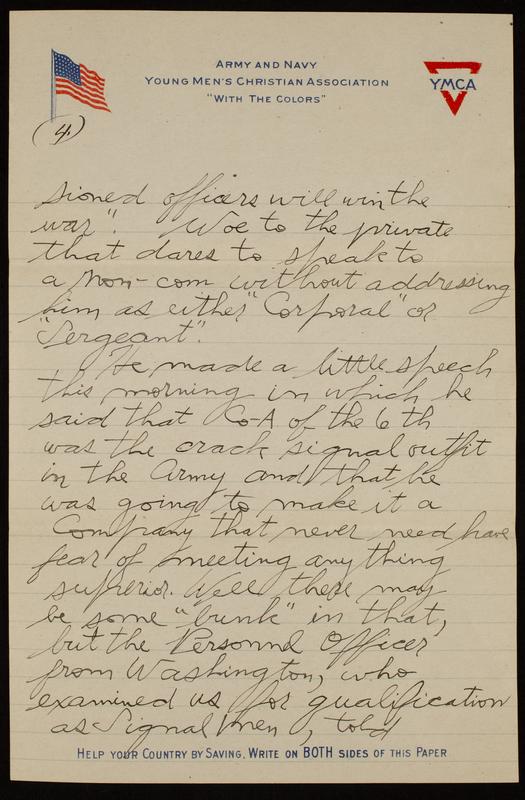 ARMY AND NAVY
YOUNG MEN'S CHRISTIAN ASSOCIATION
"WITH THE COLORS"
YMCA
(4)
sioned officers will win the
war". Woe to the private
that dares to speak to
a non-com without addressing
him as either "Corporal" or
"Sergeant".
He made a little speech
this morning in which he
said that Co-A of the 6th
was the crack signal outfit
in the Army and that he
was going to make it a
Company that never need have
fear of meeting anything
superior. Well there may
be some "bunk" in that,
but the Personnel Officer
from Washington, who
examined us for qualification
as Signal men, told
HELP YOUR COUNTRY BY SAVING. WRITE ON BOTH SIDES OF THIS PAPER